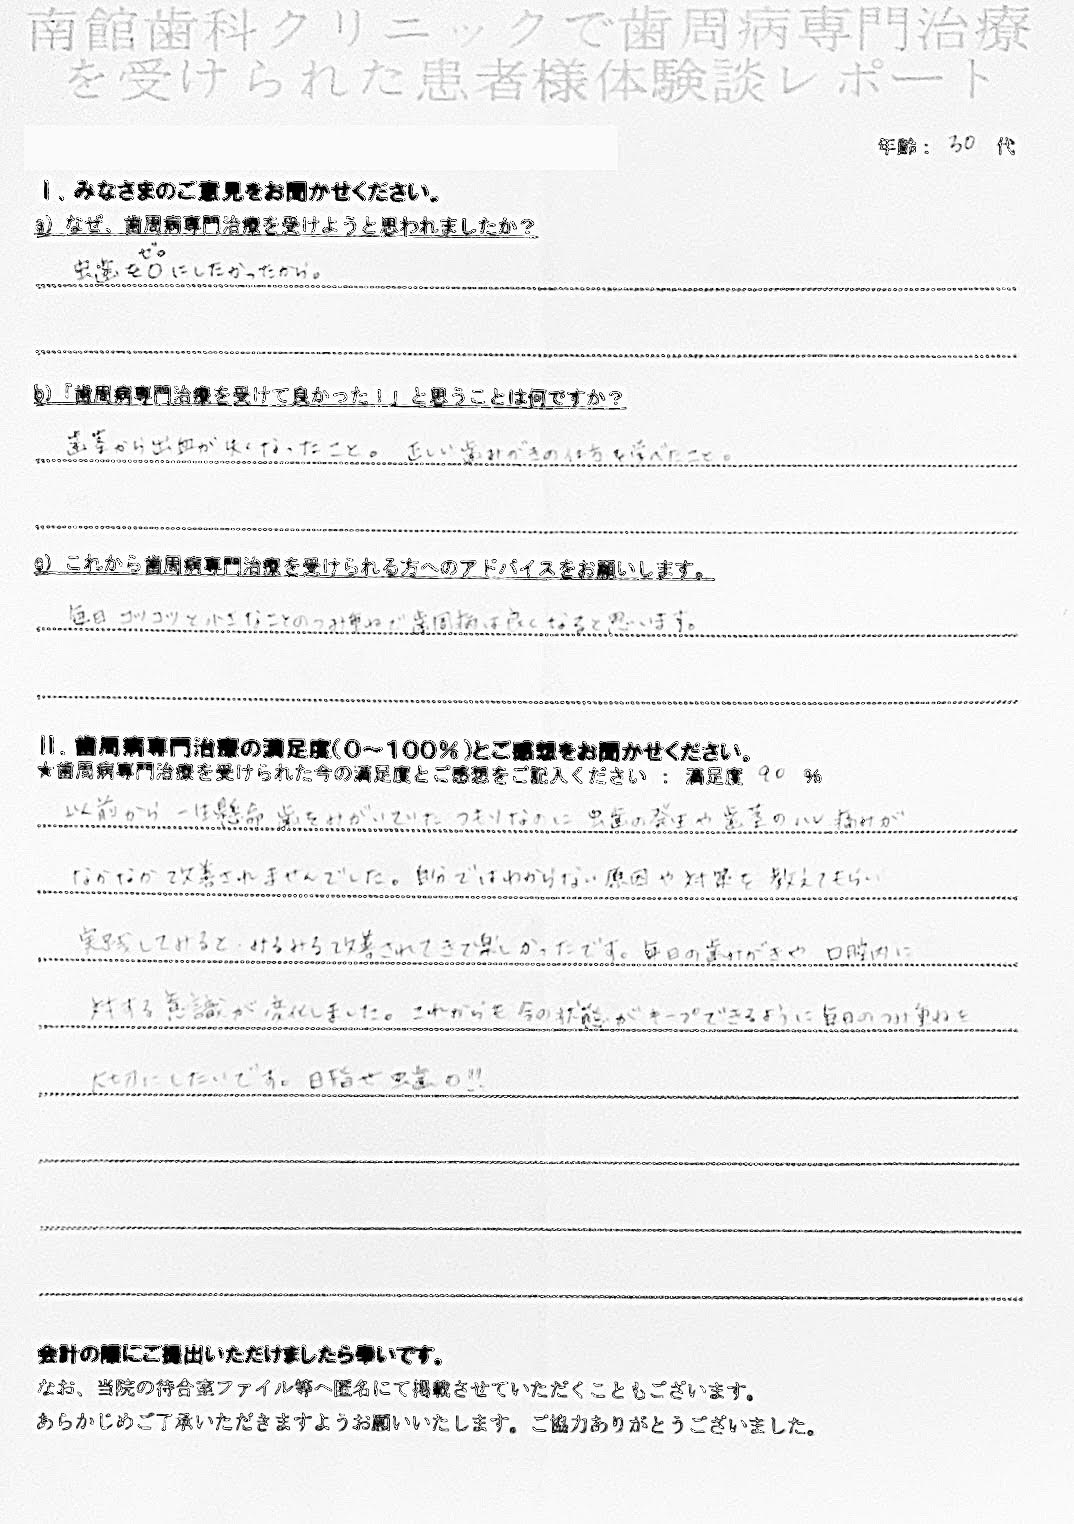 南館歯科クリニックで歯周病専門治療
を受けられた患者様体験談レポート
年齢： 30 代
Ⅰ．みなさまのご意見をお聞かせください。
a）なぜ、歯周病専門治療を受けようと思われましたか？
ぜロ
虫歯を0にしたかったから。
b）「歯周病専門治療を受けて良かった！」と思うことは何ですか？
歯茎から出血が無くなったこと。 正しい歯みがきの仕方を学べたこと。
c）これから歯周病専門治療を受けられる方へのアドバイスをお願いします。
毎日コツコツと小さなことのつみ重ねで歯周病は良くなると思います。
Ⅱ．歯周病専門治療の満足度（0～100％）とご感想をお聞かせください。
★歯周病専門治療を受けられた今の満足度とご感想をご記入ください ： 満足度 90 ％
以前から一生懸命歯をみがいていたつもりなのに虫歯の発生や歯茎のハレ痛みが
なかなか改善されませんでした。自分ではわからない原因や対策を教えてもらい
実践してみると、みるみる改善されてきて楽しかったです。毎日の歯みがきや口腔内に
対する意識が変化しました。これからも今の状態がキープできるように毎日のつみ重ねを
大切にしたいです。目指せ虫歯0!!
会計の際にご提出いただけましたら幸いです。
なお、当院の待合室ファイル等へ匿名にて掲載させていただくこともございます。
あらかじめご了承いただきますようお願いいたします。ご協力ありがとうございました。